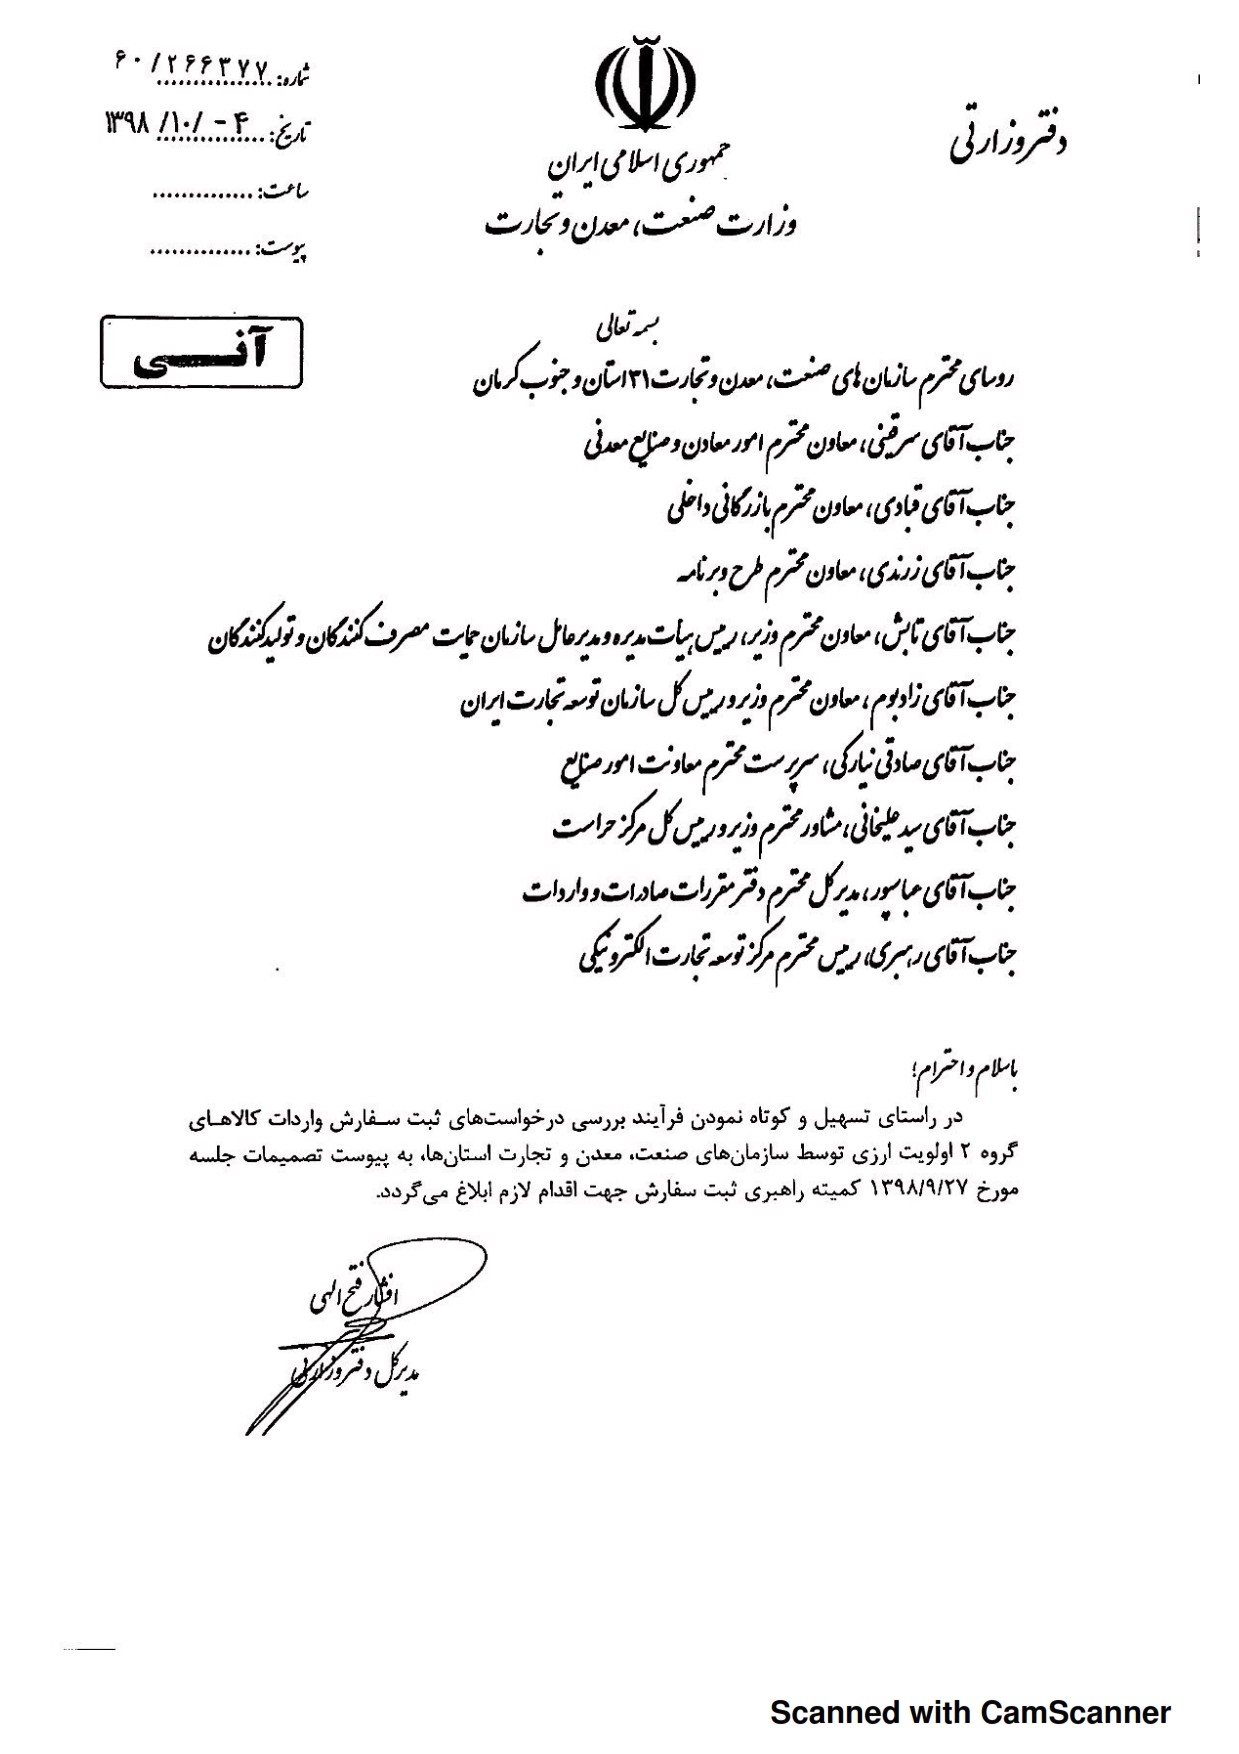 شماره: ۶۰/۲۶۶۳۷۷
تاریخ: ۱۳۹۸/۱۰/-۴
ساعت: ..............
پیوست: ..............
دفتر وزارتی
جمهوری اسلامی ایران
وزارت صنعت، معدن و تجارت
آنـــی
بسمه تعالی
روسای محترم سازمان های صنعت، معدن و تجارت ۳۱ استان و جنوب کرمان
جناب آقای سرقینی، معاون محترم امور معادن و صنایع معدنی
جناب آقای قبادی، معاون محترم بازرگانی داخلی
جناب آقای زرندی، معاون محترم طرح و برنامه
جناب آقای تابش، معاون محترم وزیر، رییس هیأت مدیره و مدیرعامل سازمان حمایت مصرف کنندگان و تولیدکنندگان
جناب آقای زادبوم، معاون محترم وزیر و رییس کل سازمان توسعه تجارت ایران
جناب آقای صادقی نیارکی، سرپرست محترم معاونت امور صنایع
جناب آقای سید علیخانی، مشاور محترم وزیر و رییس کل مرکز حراست
جناب آقای عباسپور، مدیرکل محترم دفتر مقررات صادرات و واردات
جناب آقای رهبری، رییس محترم مرکز توسعه تجارت الکترونیکی
باسلام و احترام؛
در راستای تسهیل و کوتاه نمودن فرآیند بررسی درخواست‌های ثبت سـفارش واردات کالاهـای
گروه ۲ اولویت ارزی توسط سازمان‌های صنعت، معدن و تجارت استان‌ها، به پیوست تصمیمات جلسه
مورخ ۱۳۹۸/۹/۲۷ کمیته راهبری ثبت سفارش جهت اقدام لازم ابلاغ می‌گردد.
افشار فتح الهی
مدیرکل دفتر وزارتی
Scanned with CamScanner